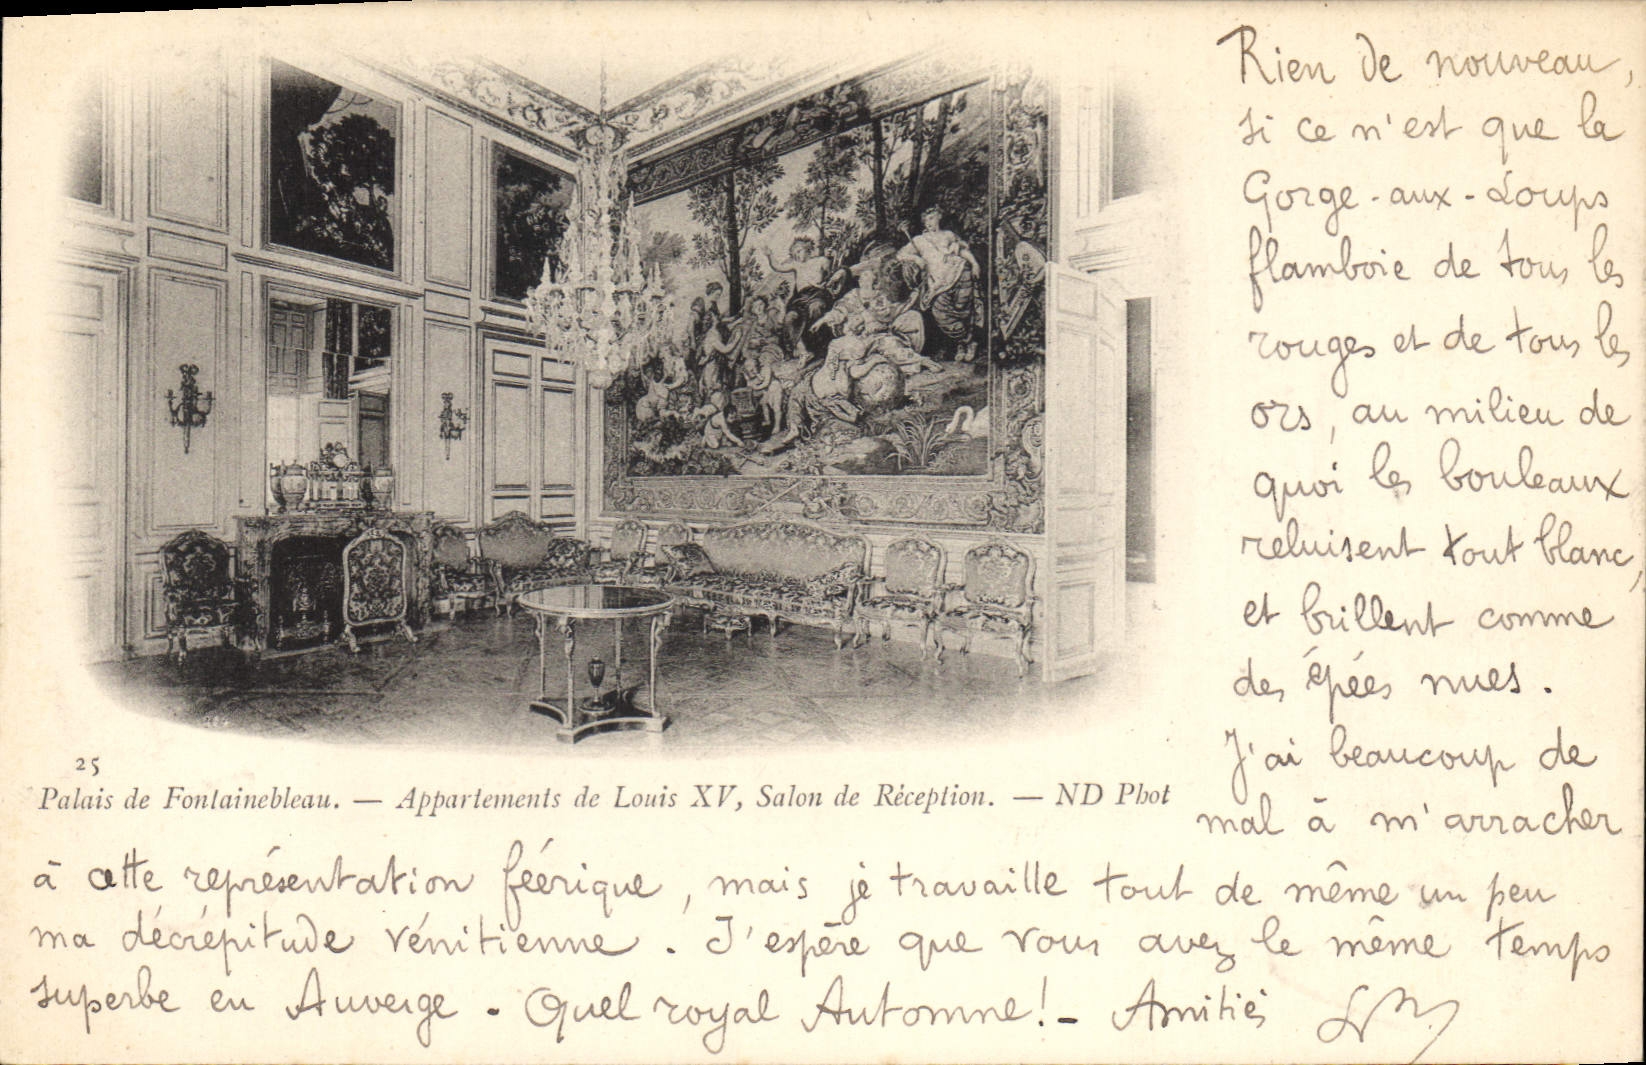 Rien de nouveau,
si ce n'est que la
Gorge-aux-Loups
flamboie de tous les
rouges et de tous les
ors, au milieu de
quoi les bouleaux
reluisent tout blanc,
et brillent comme
des épées nues.
J'ai beaucoup de
mal à m'arracher
25
Palais de Fontainebleau. — Appartements de Louis XV, Salon de Réception. — ND Phot
à cette représentation féérique, mais je travaille tout de même un peu
ma décrépitude vénitienne. J'espère que vous avez le même temps
superbe en Auvergne. Quel royal Automne! - Amitiés